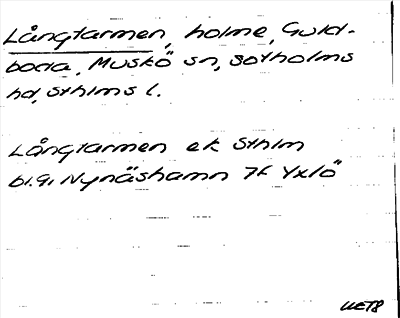 Långtarmen, holme, Guld-
boda, Muskö sn, Sotholms
hd, Sthlms l.
Långtarmen ek Sthlm
bl.9. Nynäshamn 7f Yxlö
UET8